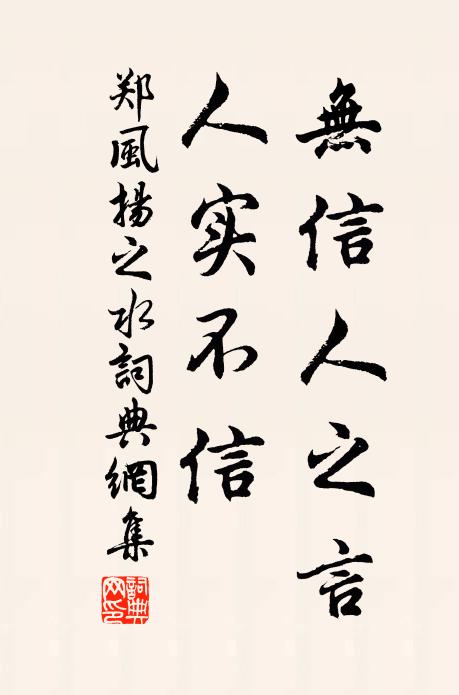 無信人之言
人实不信
郑風揚之水詞典網集
詞典网印